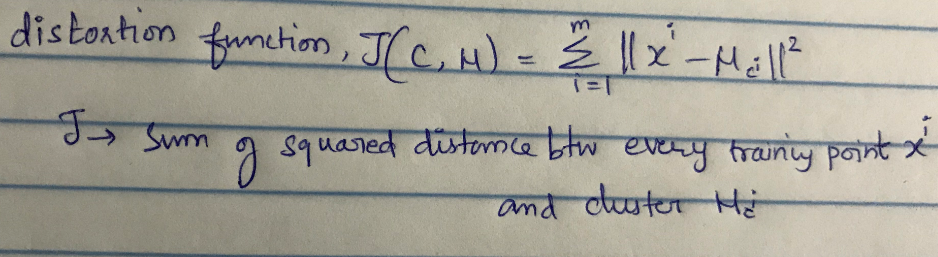 distortion function, J(C, μ) = Σᵐᵢ₌₁ ||xⁱ - μ_cⁱ||²
J → sum of squared distance btw every training point xⁱ
and cluster μ_cⁱ